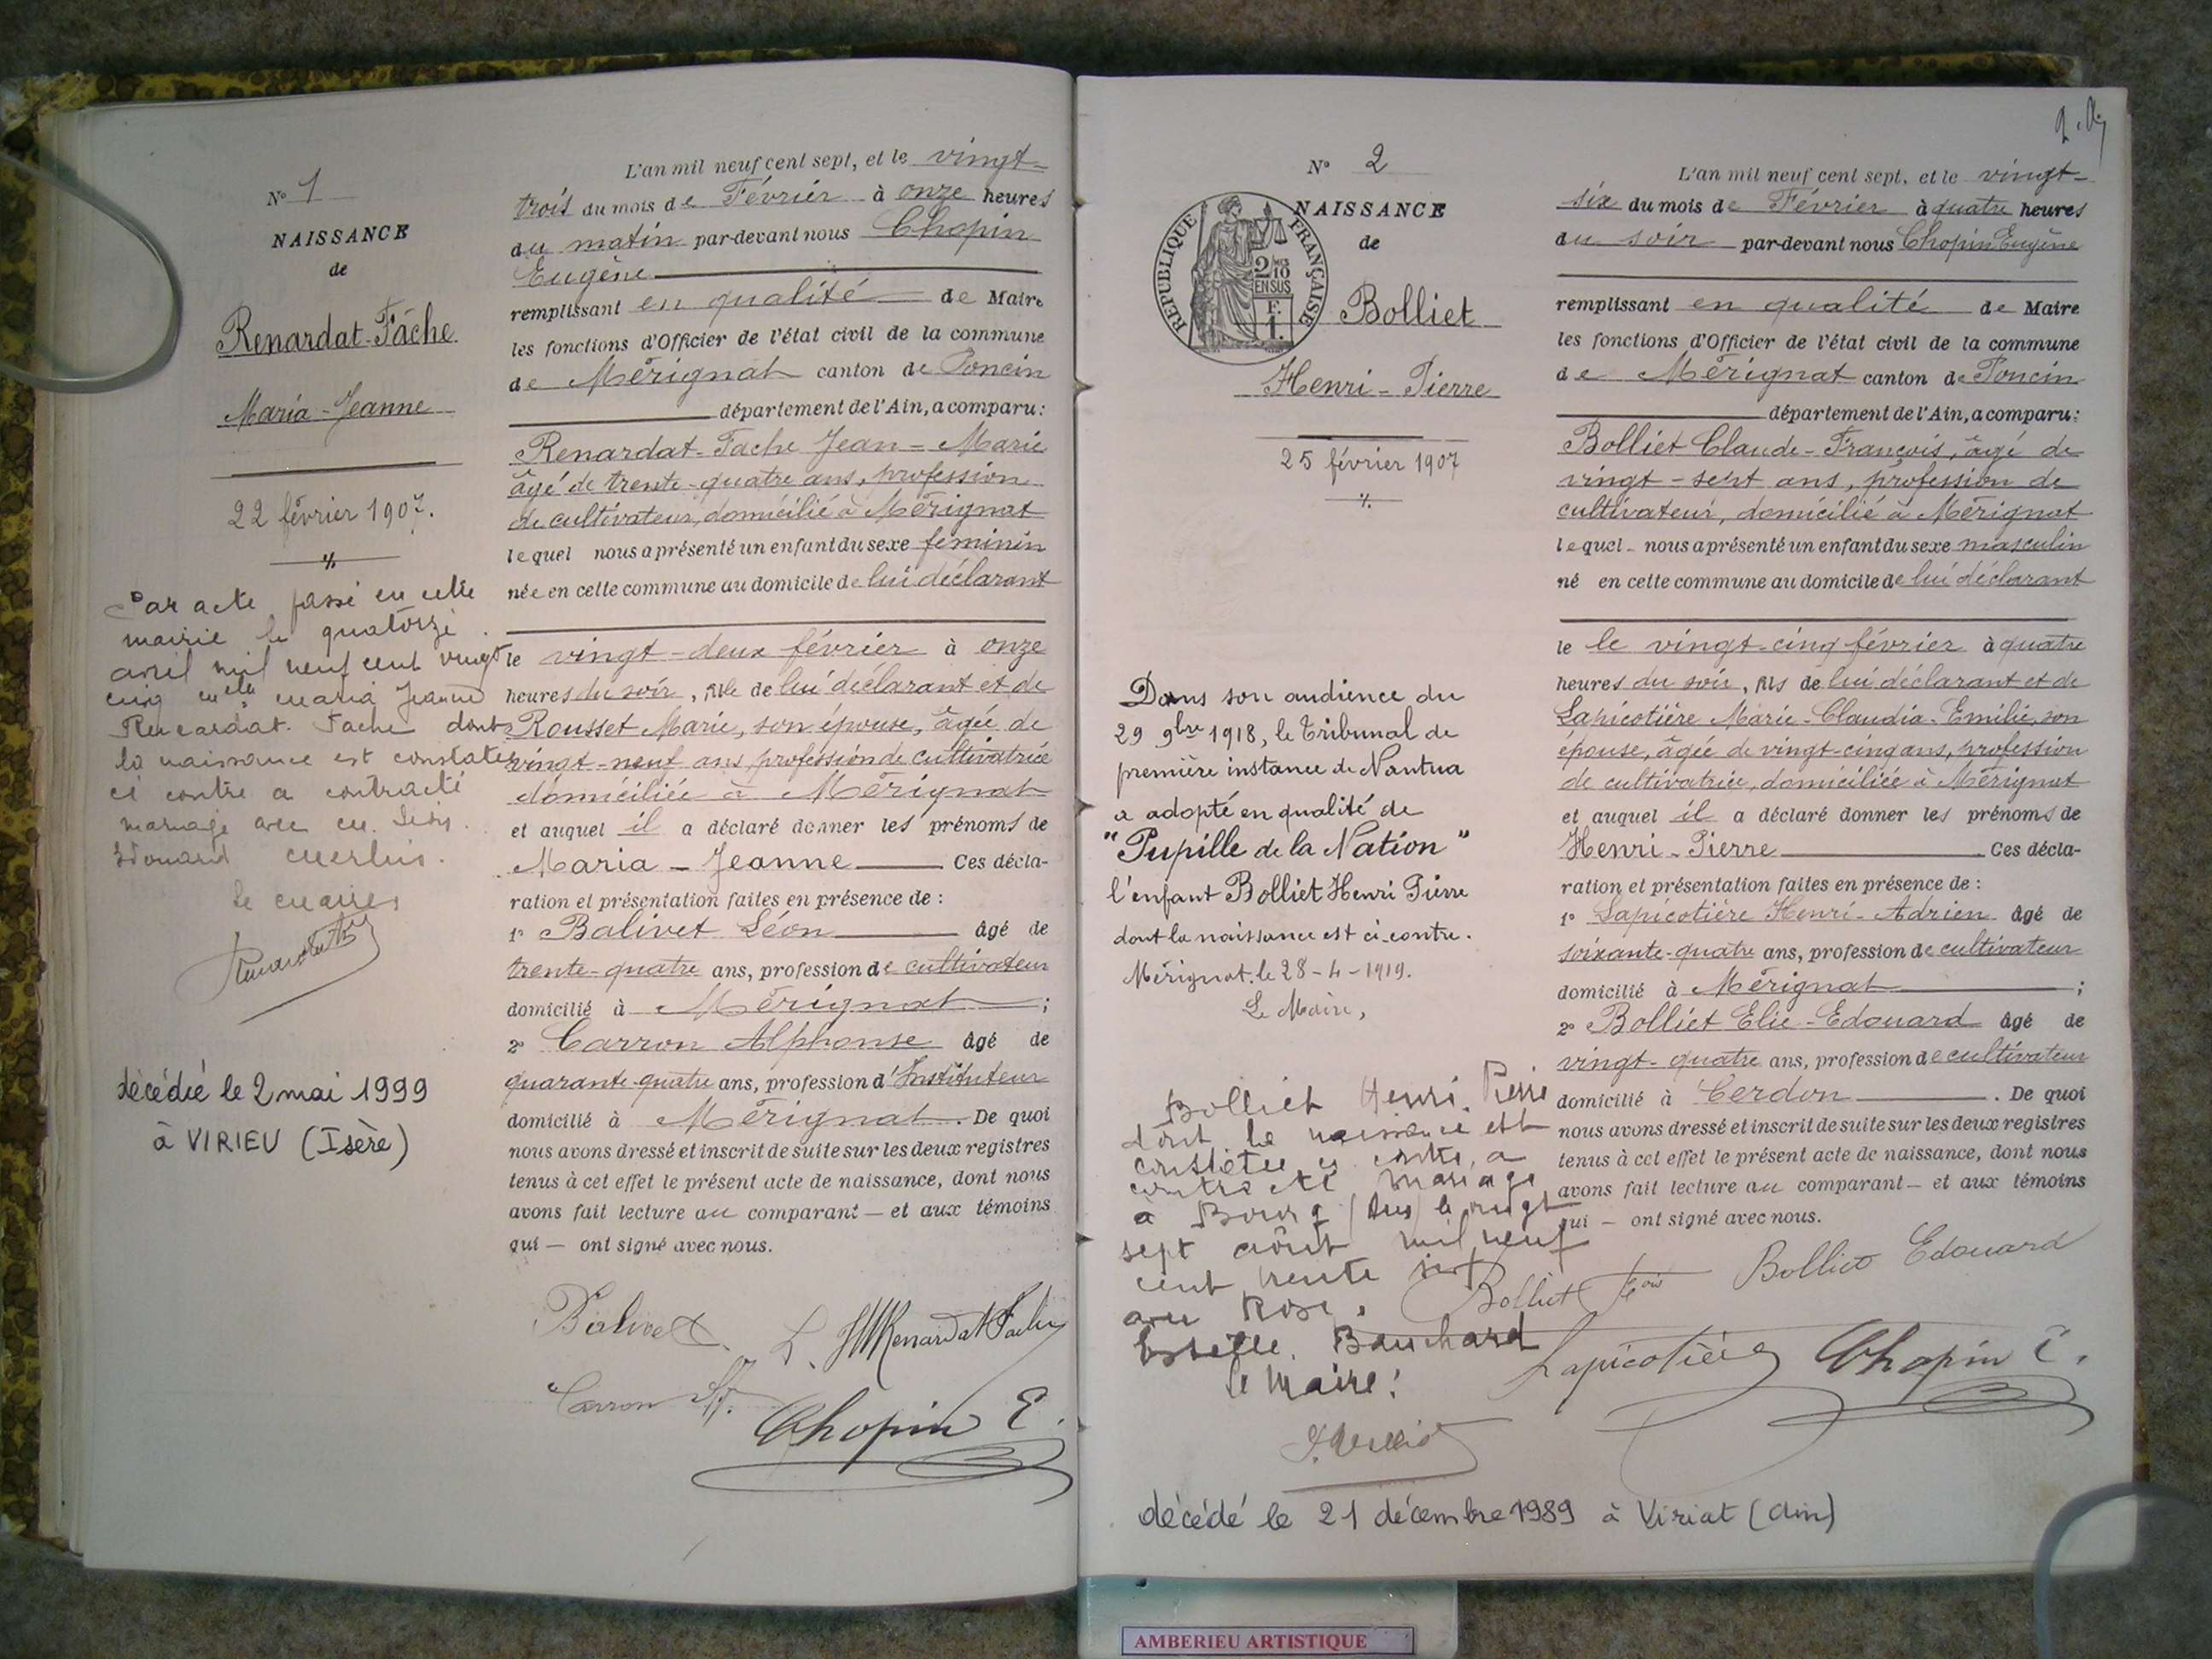 N° 1
NAISSANCE
de
Renardat-Fâche
Maria-Jeanne
22 février 1907.
Par acte passé en cette
mairie le quatorze
avril mil neuf cent vingt
cinq Melle Maria Jeanne
Renardat. Fache dont
la naissance est constatée
ci contre a contracté
mariage avec M.
Edouard
Le Maire
décédée le 2 mai 1999
à VIRIEU (Isère)
L'an mil neuf cent sept, et le vingt-
trois du mois de Février à onze heures
du matin par-devant nous Chopin
Eugène
remplissant en qualité de Maire
les fonctions d'Officier de l'état civil de la commune
de Mérignat canton de Poncin
département de l'Ain, a comparu:
Renardat-Fache Jean-Marie
âgé de trente-quatre ans, profession
de cultivateur, domicilié à Mérignat
lequel nous a présenté un enfant du sexe féminin
née en cette commune au domicile de lui déclarant
le vingt-deux février à onze
heures du soir, fille de lui déclarant et de
Rousset Marie, son épouse, âgée de
vingt-neuf ans, profession de cultivatrice
domiciliée à Mérignat
et auquel il a déclaré donner les prénoms de
Maria-Jeanne Ces décla-
ration et présentation faites en présence de :
1° Balivet Léon âgé de
trente-quatre ans, profession de cultivateur
domicilié à Mérignat ;
2° Carron Alphonse âgé de
quarante-quatre ans, profession d'Instituteur
domicilié à Mérignat. De quoi
nous avons dressé et inscrit de suite sur les deux registres
tenus à cet effet le présent acte de naissance, dont nous
avons fait lecture au comparant — et aux témoins
qui — ont signé avec nous.
Balivet L. JM Renardat Fache
Carron
Chopin E.
N° 2
NAISSANCE
de
RÉPUBLIQUE FRANÇAISE
2/10
EN SUS
F.
1.
Bolliet
Henri-Pierre
25 février 1907
Dans son audience du
29 9bre 1918, le Tribunal de
première instance de Nantua
a adopté en qualité de
"Pupille de la Nation"
l'enfant Bolliet Henri Pierre
dont la naissance est ci-contre.
Mérignat, le 28-4-1919.
Le Maire,
Bolliet Henri. Pierre
dont la naissance est
constatée ci contre, a
contracté mariage
à Bourg (Ain) le vingt
sept août mil neuf
cent trente sept
avec Rose,
Estelle, Bauchard
Le Maire:
décédé le 21 décembre 1989 à Viriat (Ain)
L'an mil neuf cent sept, et le vingt-
six du mois de Février à quatre heures
du soir par-devant nous Chopin Eugène
remplissant en qualité de Maire
les fonctions d'Officier de l'état civil de la commune
de Mérignat canton de Poncin
département de l'Ain, a comparu:
Bolliet Claude-François, âgé de
vingt-sept ans, profession de
cultivateur, domicilié à Mérignat
lequel - nous a présenté un enfant du sexe masculin
né en cette commune au domicile de lui déclarant
le le vingt-cinq février à quatre
heures du soir, fils de lui déclarant et de
Lapicotière Marie-Claudia-Emilie, son
épouse, âgée de vingt-cinq ans, profession
de cultivatrice, domiciliée à Mérignat
et auquel il a déclaré donner les prénoms de
Henri-Pierre Ces décla-
ration et présentation faites en présence de :
1° Lapicotière Henri-Adrien âgé de
soixante-quatre ans, profession de cultivateur
domicilié à Mérignat ;
2° Bolliet Elie-Edouard âgé de
vingt-quatre ans, profession de cultivateur
domicilié à Cerdon. De quoi
nous avons dressé et inscrit de suite sur les deux registres
tenus à cet effet le présent acte de naissance, dont nous
avons fait lecture au comparant — et aux témoins
qui — ont signé avec nous.
Bolliet fçois Bolliet Edouard
Lapicotière Chopin E.
AMBERIEU ARTISTIQUE